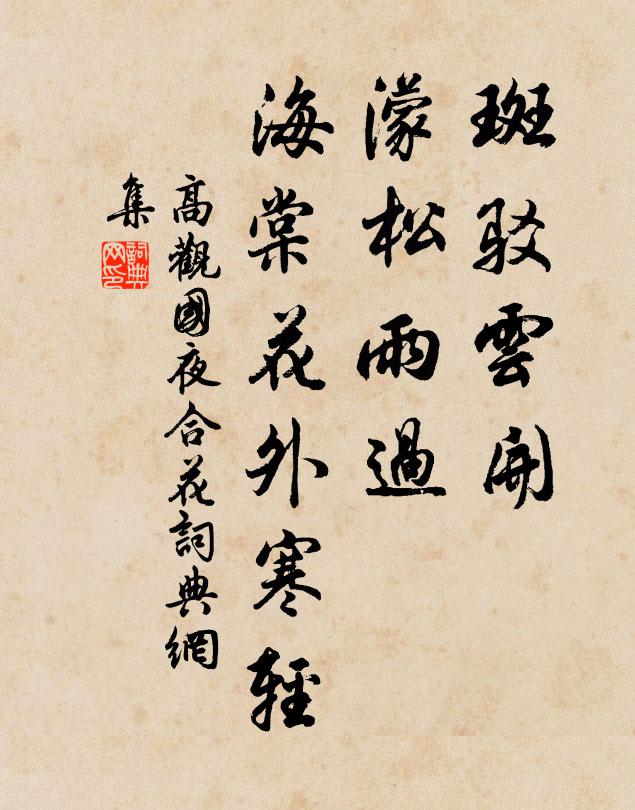 斑駁雲開
濛松雨過
海棠花外寒輕
高觀國夜合花詞典網
集
詞典網印